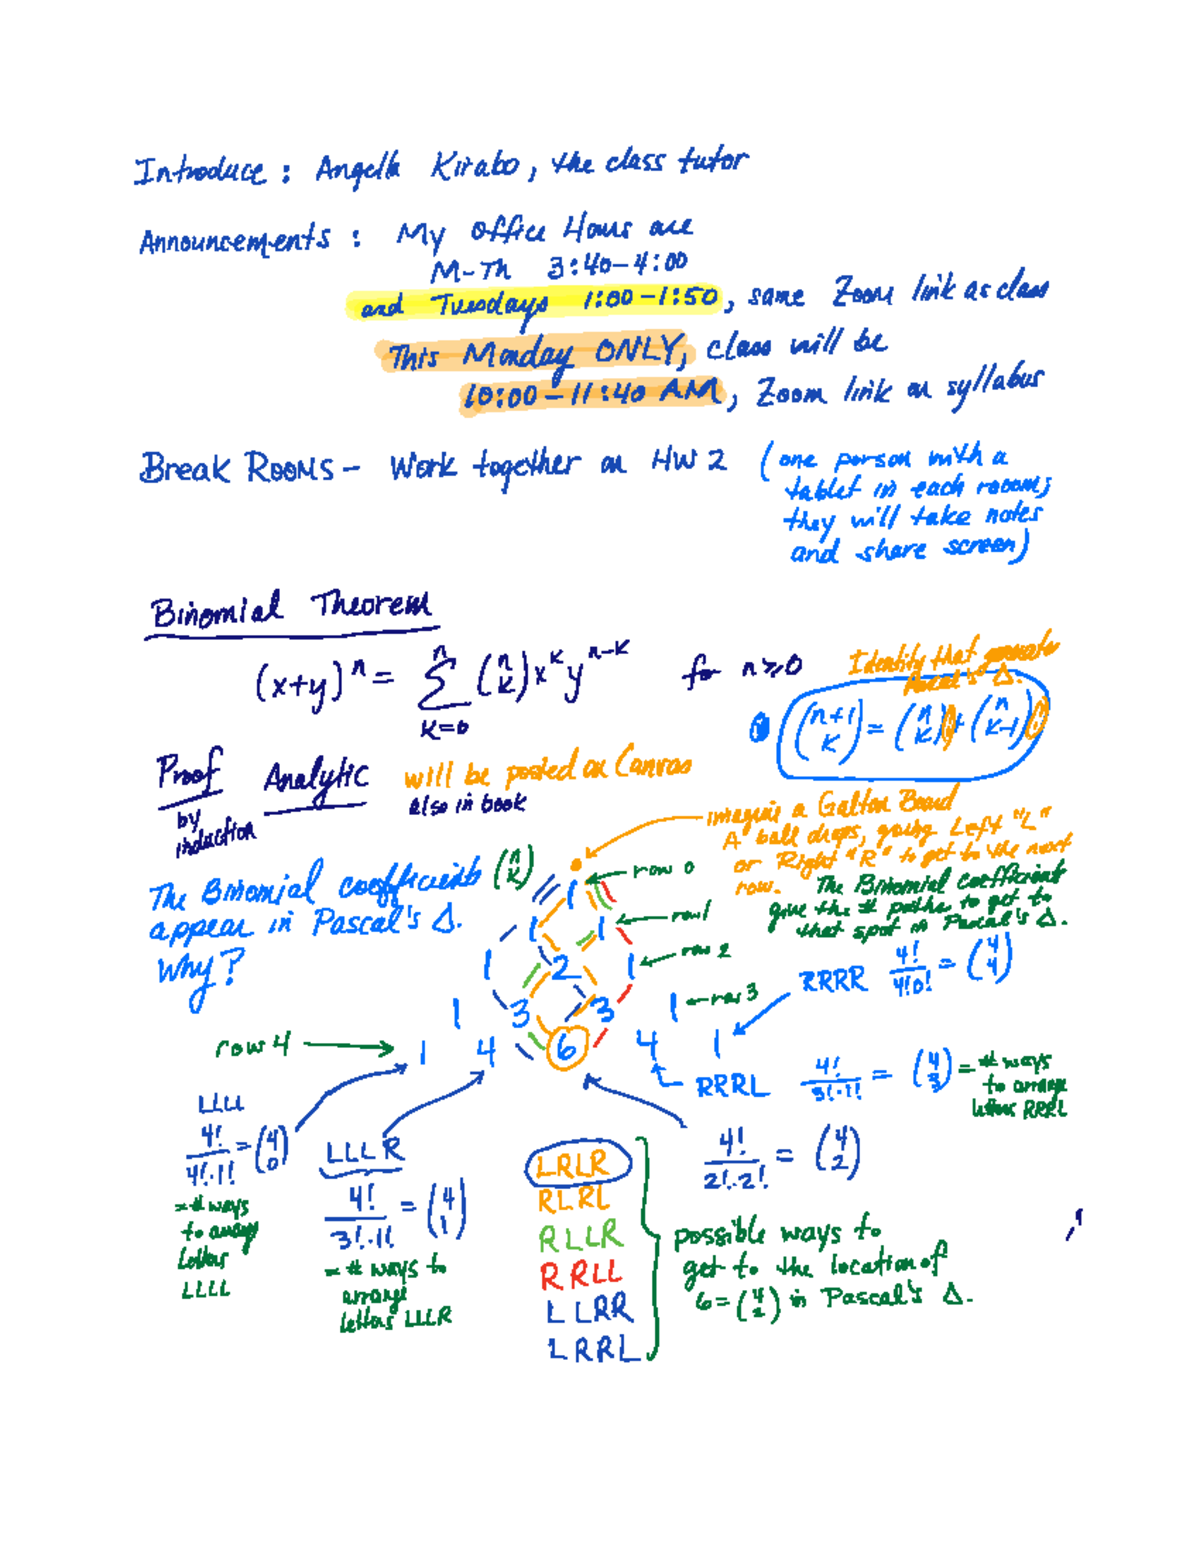 Introduce : Angella Kirabo, the class tutor
Announcements : My office Hours are
M-Th 3:40-4:00
and Tuesdays 1:00-1:50, same Zoom link as class
This Monday ONLY, class will be
10:00-11:40 AM, Zoom link on syllabus
Break Rooms - Work together on HW 2 (one person with a
tablet in each rooom;
they will take notes
and share screen)
Binomial Theorem
(x+y)^n = Σ_{k=0}^{n} (n k) x^k y^{n-k} for n≥0
Identity that generates
Pascal's Δ.
(n+1 k) = (n k) + (n k-1)
Proof Analytic will be posted on Canvas
by induction
also in book
imagine a Galton Board
A ball drops, going Left "L"
or Right "R" to get to the next
row. The Binomial coefficients
give the # paths to get to
that spot in Pascal's Δ.
The Binomial coefficients (n k)
appear in Pascal's Δ.
Why?
1 ← row 0
1 1 ← row 1
1 2 1 ← row 2
1 3 3 1 ← row 3
row 4 → 1 4 6 4 1
RRRR 4!/4!0! = (4 4)
RRRL 4!/3!·1! = (4 3) = # ways
to arrange
letters RRRL
LLLL
4!/4!·1! = (4 0)
= # ways
to arrange
letters
LLLL
LLLR
4!/3!·1! = (4 1)
= # ways to
arrange
letters LLLR
LRLR
RLRL
RLLR
RRLL
LLRR
LRRL
4!/2!·2! = (4 2)
possible ways to
get to the location of
6 = (4 2) in Pascal's Δ.